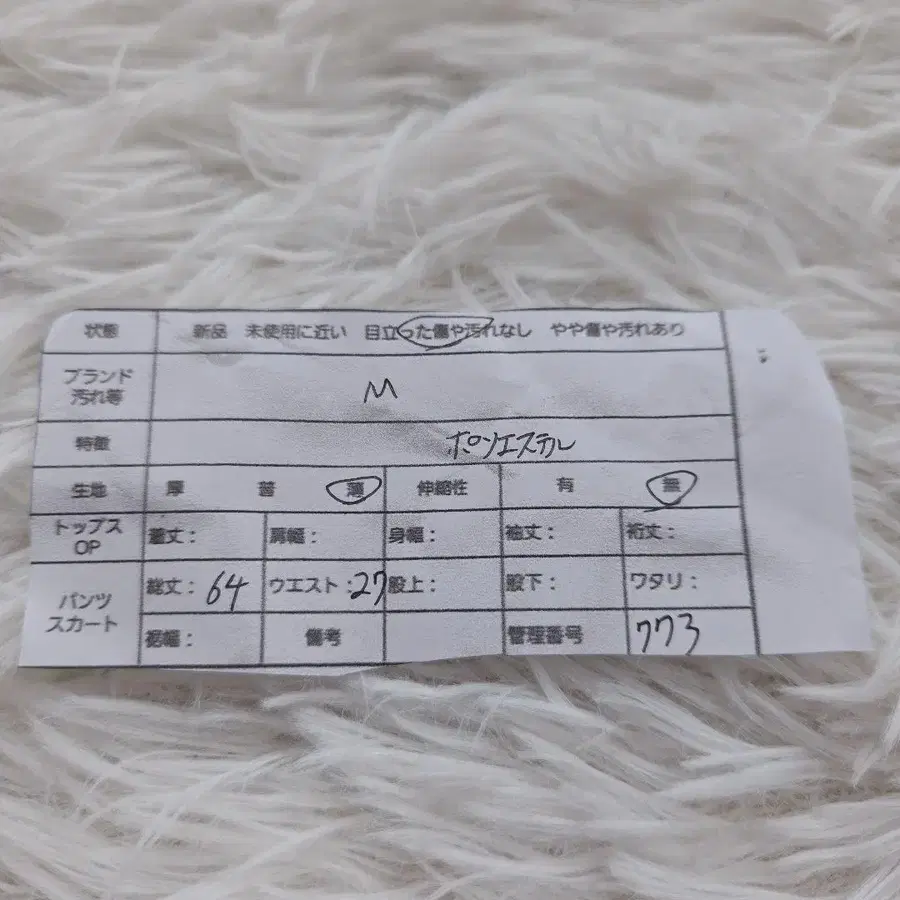 状態 新品 未使用に近い 目立った傷や汚れなし やや傷や汚れあり
ブランド
汚れ等 M
特徴 ポリエステル
生地 厚 普 薄 伸縮性 有 無
トップス
OP 着丈: 肩幅: 身幅: 袖丈: 裄丈:
パンツ
スカート 総丈: 64 ウエスト: 27 股上: 股下: ワタリ:
裾幅: 備考 管理番号 773